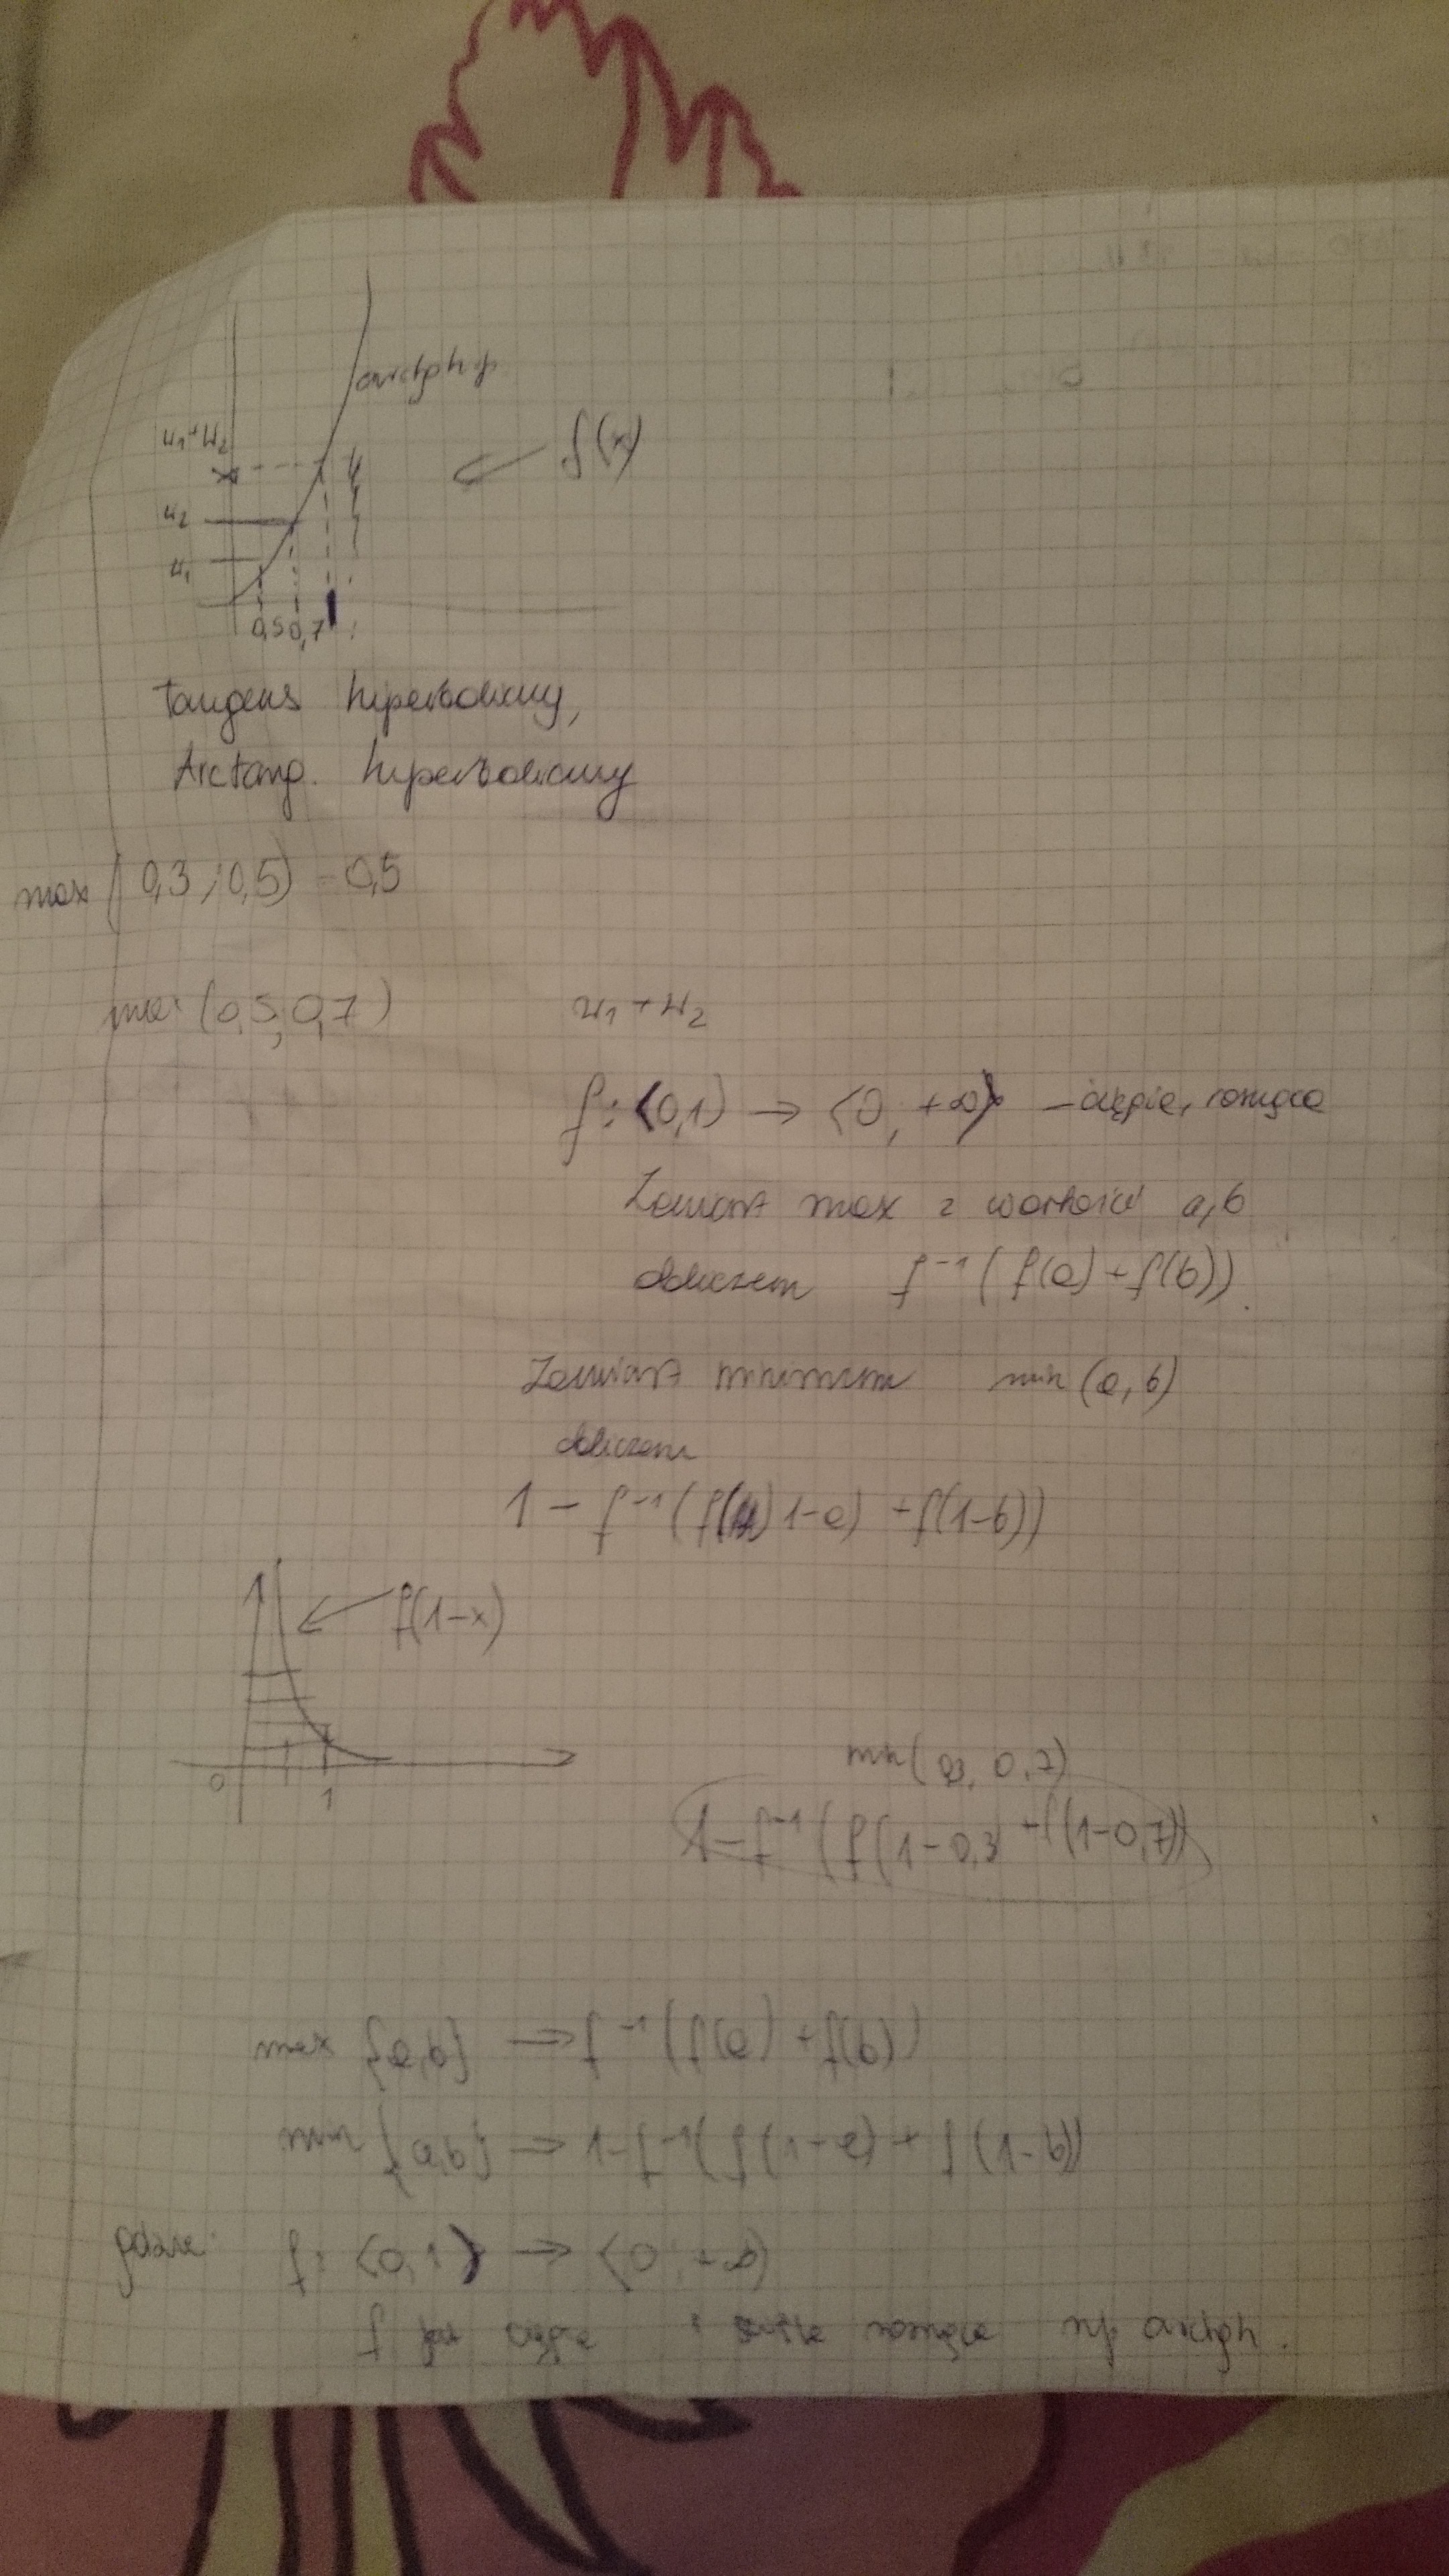 arctgh
u₁+u₂
f(x)
u₂
u₁
0,5 0,7
Tangens hiperboliczny,
Arctang. hiperboliczny
max (0,3; 0,5) = 0,5
(0,5; 0,7)
u₁+u₂
f: <0,1) → <0, +∞) – ciągła, rosnąca
Zamiast max z wartości a,b
obliczam f⁻¹(f(a)+f(b)).
Zamiast minimum min(a,b)
obliczam
1 – f⁻¹(f(1–a) + f(1–b))
f(1–x)
0
1
min(0,3, 0,7)
1–f⁻¹(f(1–0,3)+f(1–0,7))
max {a,b} → f⁻¹(f(a)+f(b))
min {a,b} → 1–f⁻¹(f(1–a)+f(1–b))
gdzie: f: <0,1) → <0, +∞)
f jest ciągła i rosnąca np arctgh.